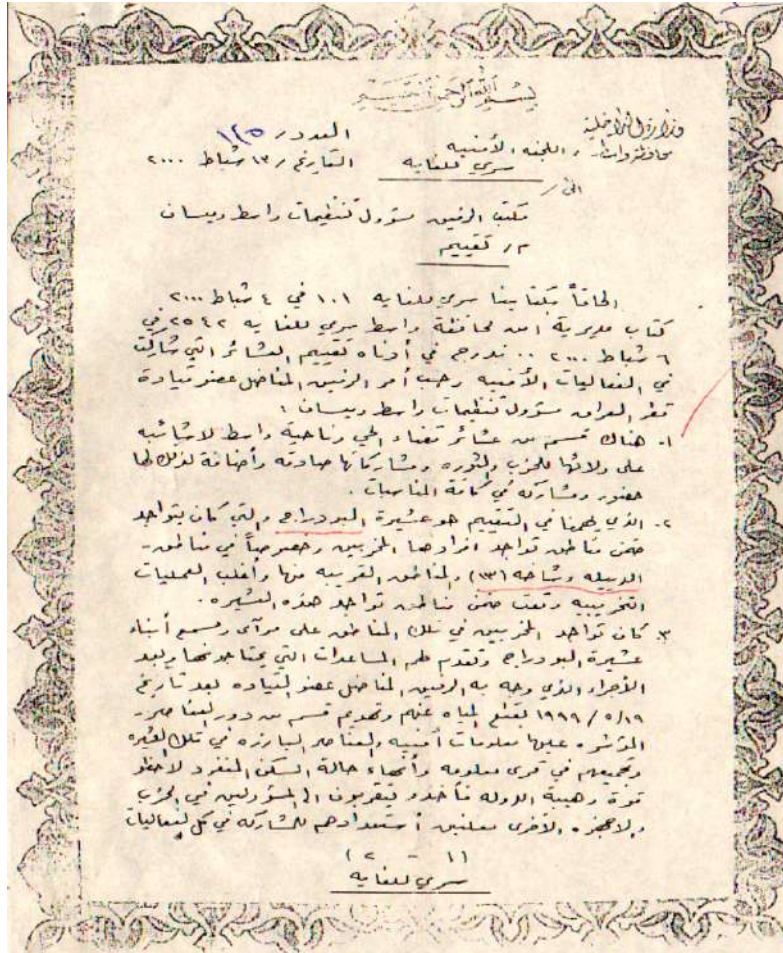 بسم الله الرحمن الرحيم
وزارة الداخلية
محافظة واسط / اللجنه الأمنيه
سري للغايه
العدد / ١٢٥
التاريخ / ١٣ شباط ٢٠٠٠
الى /
مكتب الرفيق مسؤول تنظيمات واسط وميسان
م / تقييم
الحاقاً بكتابينا سري للغايه ١٠١ في ٤ شباط ٢٠٠٠
كتاب مديرية امن محافظة واسط سري للغايه ٢٥٤٢ في
٦ شباط ٢٠٠٠ .. ندرج في أدناه تقييم العشائر التي شاركت
في الفعاليات الأمنيه وحسب أمر الرفيق المناضل عضو قيادة
قطر العراق مسؤول تنظيمات واسط وميسان :
١- هناك قسم من عشائر قضاء الحي وناحية واسط لا شائبه
على ولائها للحزب والثوره ومشاركاتها صادقه وأضافة لذلك لها
حضور ومشاركه في كافة المناسبات .
٢- الذي يهمنا في التقييم هو عشيرة البودراج والتي كان يتواجد
ضمن مناطق تواجد افرادها المخربين وخصوصاً في مناطق -
الدبيله وشاخه (١٣) والمناطق القريبه منها وأغلب العمليات
التخريبيه وقعت ضمن مناطق تواجد هذه العشيره .
٣- كان تواجد المخربين في تلك المناطق على مرآى ومسمع أبناء
عشيرة البودراج وتقدم لهم المساعدات التي يحتاجونها وبعد
الأجراء الذي وجه به الرفيق المناضل عضو القياده بعد تاريخ
١٩ / ٥ / ١٩٩٩ لقطع المياه عنهم وتهديم قسم من دور العناصر -
المؤشره عليها معلومات أمنيه والعناصر البارزه في تلك العشيره
وتجميعهم في قرى معلومه وأنهاء حالة السكن المنفرد لاحظو
قوة وهيبة الدوله فأخذو يتقربون الى المسؤولين في الحزب
والاجهزه الأخرى معلنين أستعدادهم للمشاركه في كل الفعاليات
( ١ - ٢ )
سري للغايه